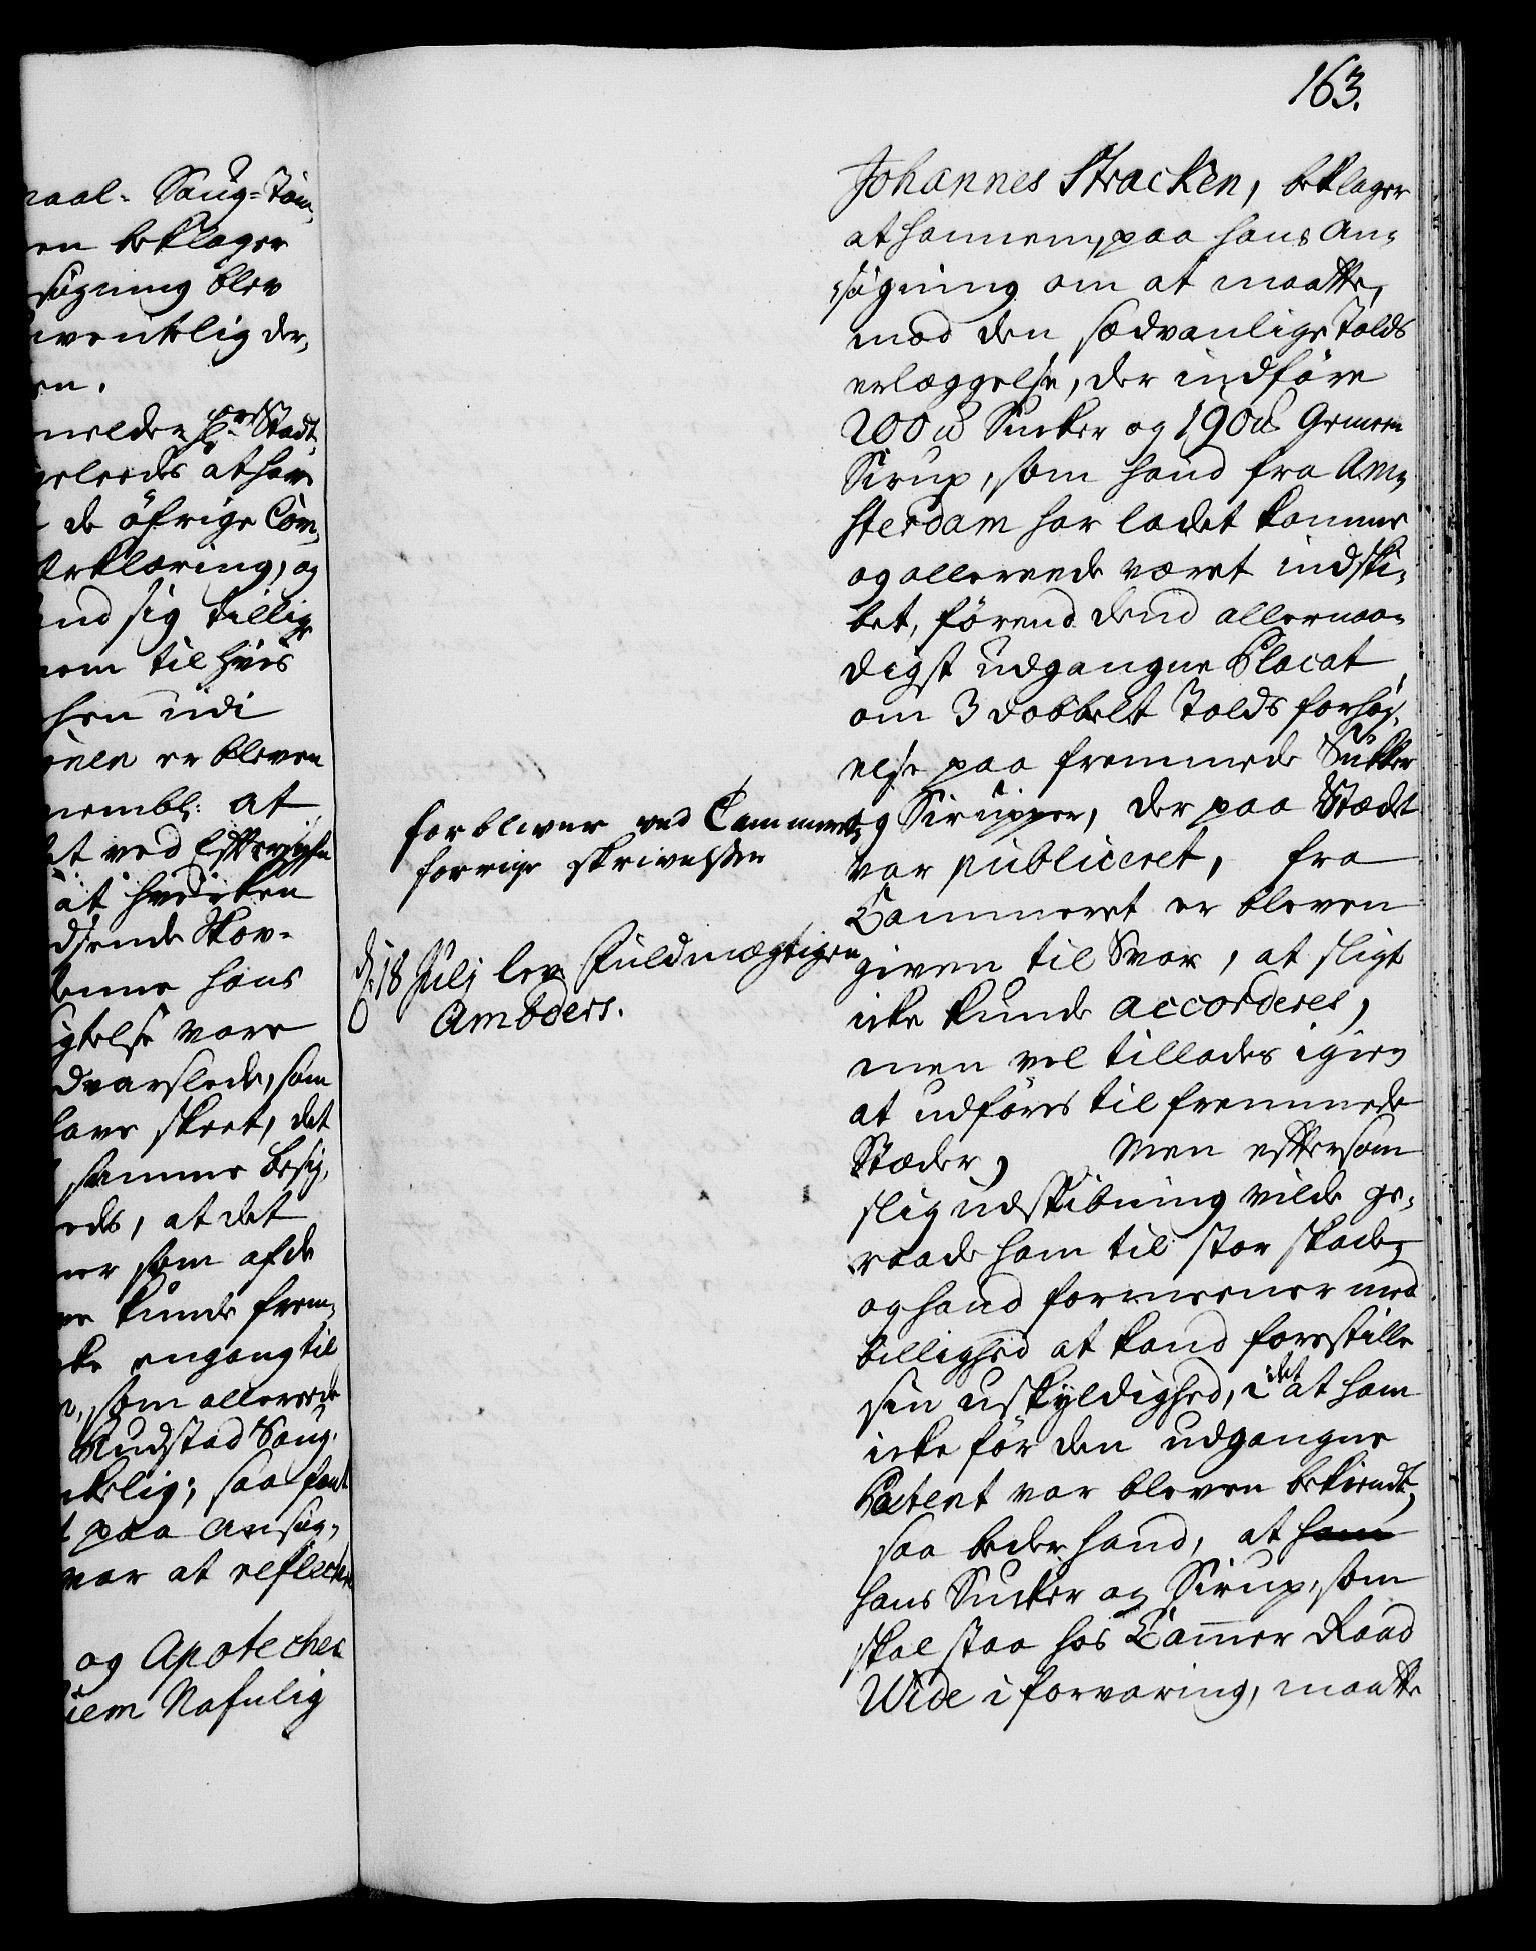 163.
naal- Saug-Tøm,
en beklager
søgning blev
ventelig der,
en.
melder Hr Stadt,
leeds at hav
de öfrige Com,
Erklæring, og
and sig tillig
nom til hvis
hen udi
onen er bleven
nembl: at
et ved Efterviise
at hvilken
dsende Skov-
kunne hans
gtelse være
dvarslede, som
lave skeet, det
samme besig,
eds, at det
er som af de
re kunde frem,
ke engang til
n, som allereede
Rudstad Saug,
kelig; saa fant
paa Ansøg,
var at reflectere
og Apotecher
iem Nafnlig
forbliver ved Cammerets
forrige skrivelsse
d. 18 Julj lev: Fuldmægtigen
Ambders.
Johannes Stracken, beklager
at hannem, paa hans An-
søgning om at maatte,
mod den sædvanlige Tolds
erlæggelse, der indføre
200 ℔ Sucker og 190 ℔ Gemeen
Sirup, som hand fra Am-
sterdam har ladet komme
og allereede været indski-
bet, förend dend allernaa-
digst udgangne Placat
om 3 dobbelt Tolds forhøj,
else paa fremmede Sukker
og Sirupper, der paa Stædet
var publiceret, fra
Cammeret er bleven
given til Svar, at sligt
icke kunde accorderes,
men vel tillades igien
at udføres til fremmede
Stæder, Men eftersom
slig udskibning vilde ge-
raade ham til stor skade,
og hand formeener med
billighed at kand forestille
sin uskyldighed, i det at ham
icke før den udgangne
Patent var bleven bekiendt,
saa beder hand, at ham
hans Sucker og Sirup, som
skal staa hos Cammer Raad
Wide i forvaring, maatte